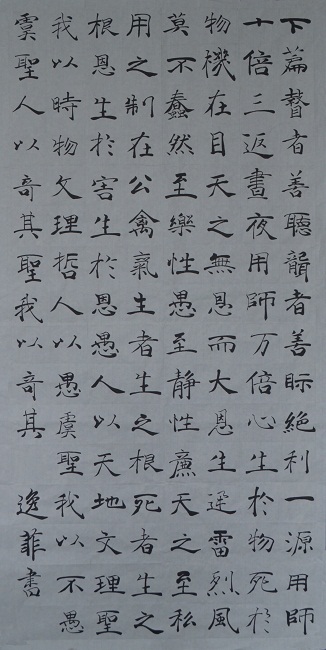 下篇瞽者善聽聾者善眎絕利一源用師
十倍三返晝夜用師万倍心生於物死於
物機在目天之無恩而大恩生迅雷烈風
莫不蠢然至樂性愚至静性廉天之至私
用之制在公禽氣生者生之根死者生之
根恩生於害生於恩愚人以天地文理聖
我以時物文理哲人以愚虞聖我以不愚
虞聖人以奇其聖我以奇其
逸菲書